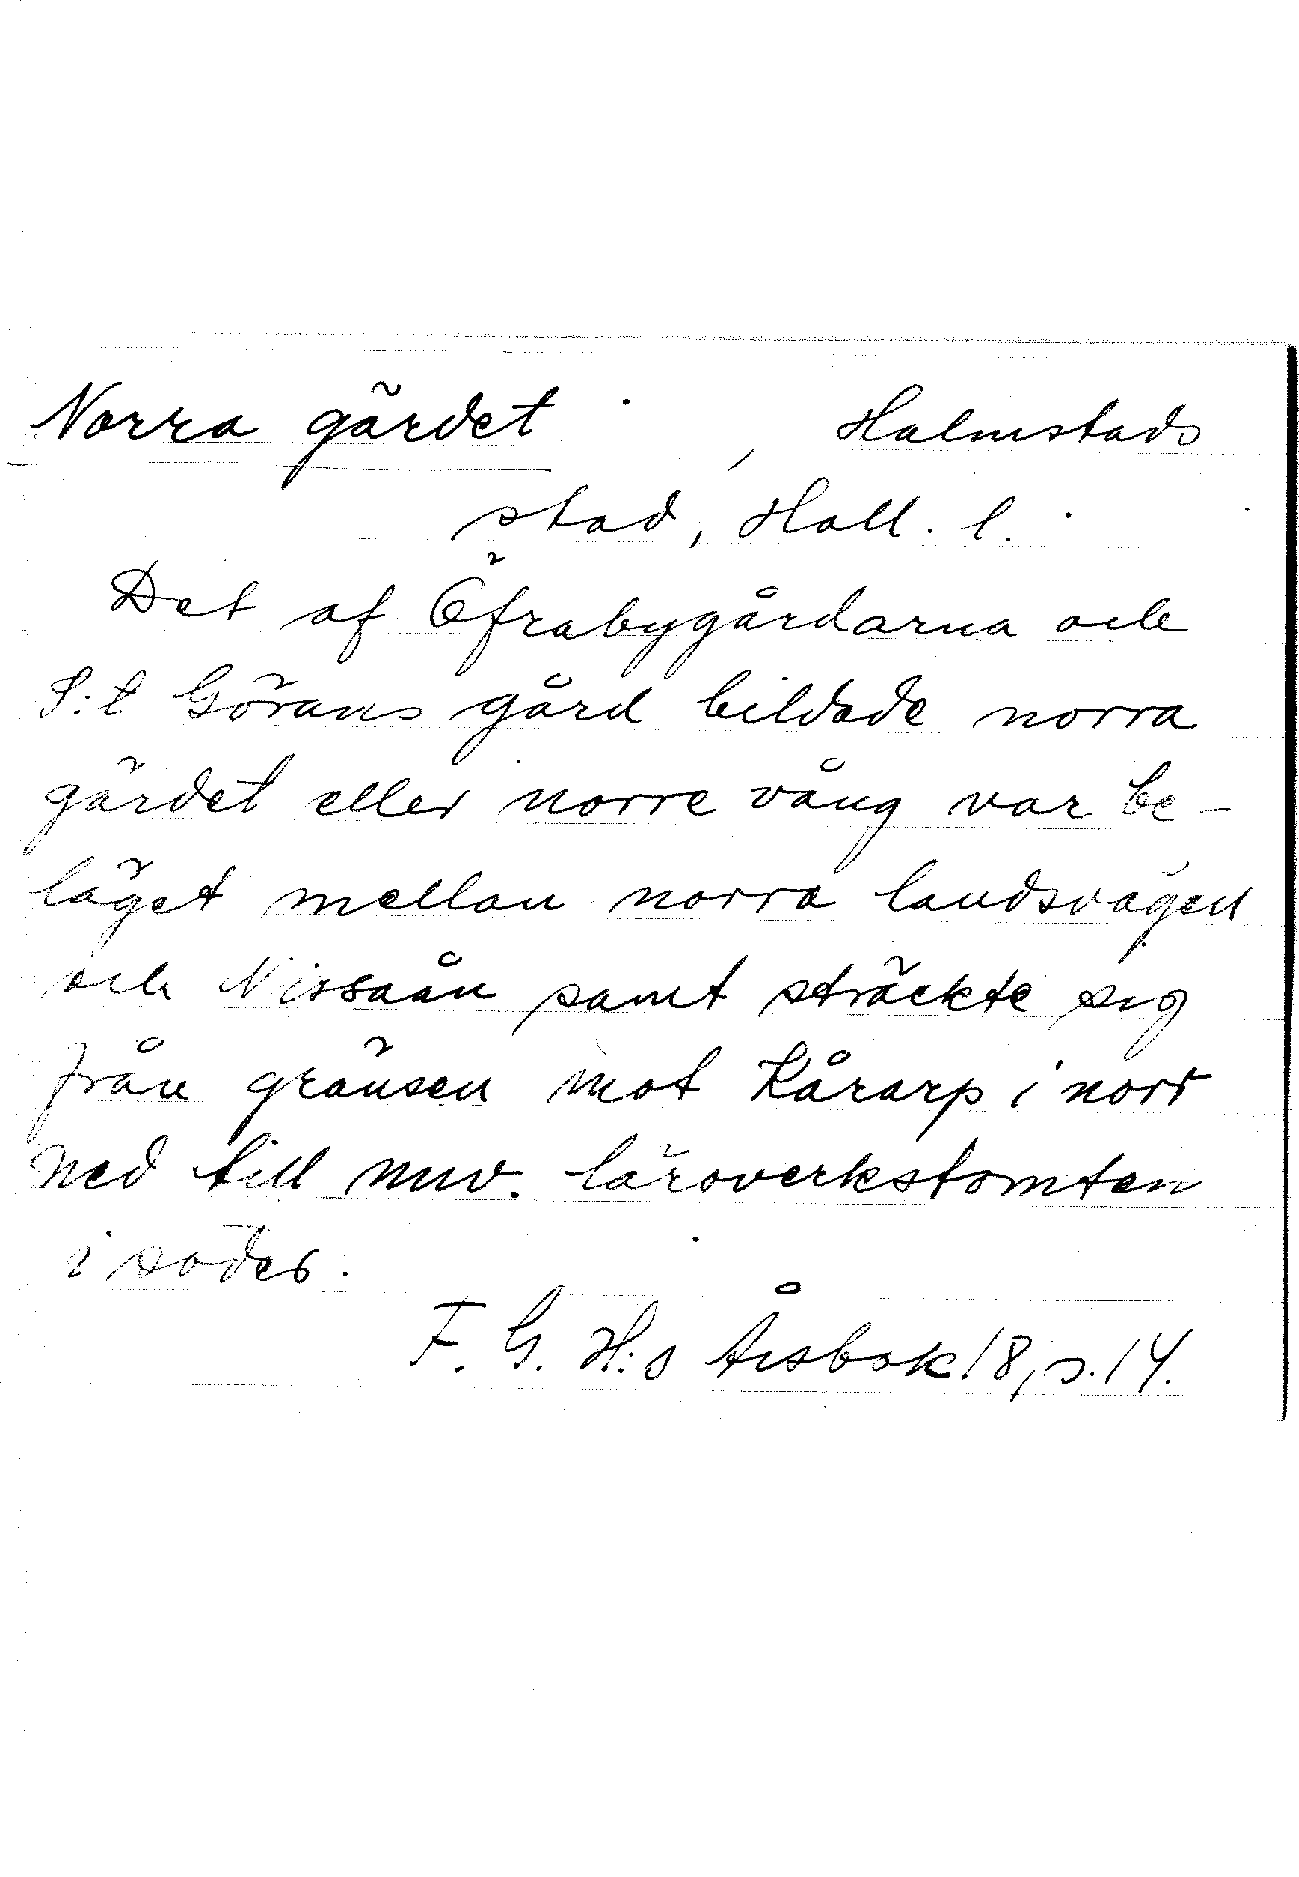 Norra gärdet, Halmstads
stad, Hall. l.
Det af Öfrabygårdarna och
S:t Görans gård bildade norra
gärdet eller norre vång var be-
läget mellan norra landsvägen
och Nissaån samt sträckte sig
från gränsen mot Kårarp i norr
ned till nuv. läroverkstomten
i söder.
F. G. H:s Årsbok 18, s. 14.